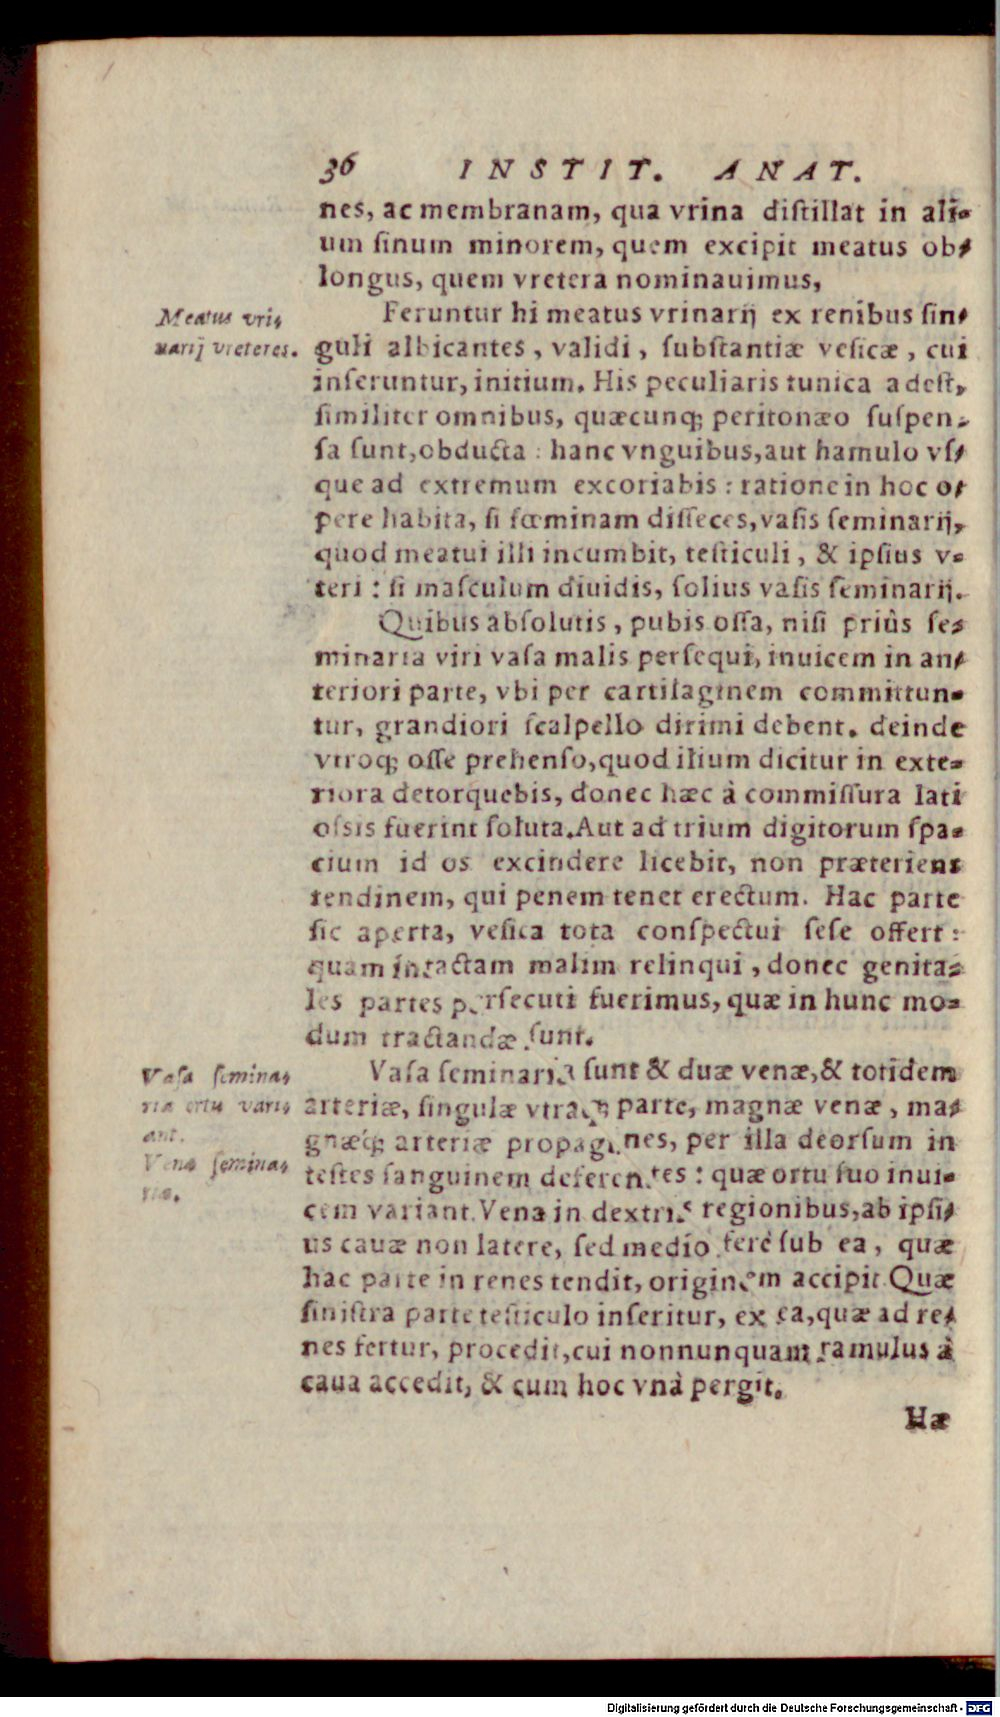 36 INSTIT. ANAT.
nes, ac membranam, qua vrina diſtillat in ali-
um ſinum minorem, quem excipit meatus ob-
longus, quem vretera nominauimus,
Meatus vri-
narij vreteres.
Feruntur hi meatus vrinarij ex renibus ſin-
guli albicantes, validi, ſubſtantiæ veſicæ, cui
inſeruntur, initium. His peculiaris tunica adeſt,
ſimiliter omnibus, quæcunq; peritonæo ſuſpen-
ſa ſunt, obducta: hanc vnguibus, aut hamulo vſ-
que ad extremum excoriabis: ratione in hoc o-
pere habita, ſi fœminam diſſeces, vaſis ſeminarij,
quod meatui illi incumbit, teſticuli, & ipſius v-
teri: ſi maſculum diuidis, ſolius vaſis ſeminarij.
Quibus abſolutis, pubis oſſa, niſi priùs ſe-
minaria viri vaſa malis perſequi, inuicem in an-
teriori parte, vbi per cartilaginem committun-
tur, grandiori ſcalpello dirimi debent. deinde
vtroq; oſſe prehenſo, quod ilium dicitur in exte-
riora detorquebis, donec hæc à commiſſura lati
oſsis fuerint ſoluta. Aut ad trium digitorum ſpa-
cium id os excindere licebit, non præteriens
tendinem, qui penem tenet erectum. Hac parte
ſic aperta, veſica tota conſpectui ſeſe offert:
quam intactam malim relinqui, donec genita-
les partes perſecuti fuerimus, quæ in hunc mo-
dum tractandæ ſunt.
Vaſa ſemina-
ria ortu vari-
ant.
Vena ſemina-
ria.
Vaſa ſeminaria ſunt & duæ venæ, & totidem
arteriæ, ſingulæ vtraq; parte, magnæ venæ, ma-
gnæq́; arteriæ propagines, per illa deorſum in
teſtes ſanguinem deferentes: quæ ortu ſuo inui-
cem variant. Vena in dextris regionibus, ab ipſi-
us cauæ non latere, ſed medio ferè ſub ea, quæ
hac parte in renes tendit, originem accipit. Quæ
ſiniſtra parte teſticulo inſeritur, ex ea, quæ ad re-
nes fertur, procedit, cui nonnunquam ramulus à
caua accedit, & cum hoc vnà pergit.
Hæ
Digitalisierung gefördert durch die Deutsche Forschungsgemeinschaft - DFG